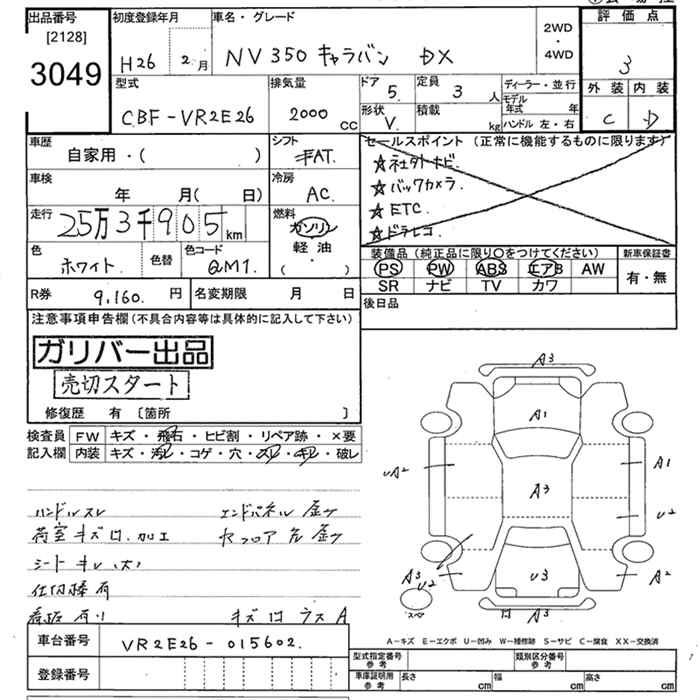 出品番号
[2128]
3049
初度登録年月
H26 2月
車名・グレード
NV350 キャラバン DX
2WD
・
4WD
評価点
3
型式
CBF-VR2E26
排気量
2000 cc
ドア
5
定員
3 人
形状
V.
積載
kg
ディーラー・並行
モデル年式 年
ハンドル 左・右
外装 内装
C D
車歴
自家用・( )
シフト
FAT.
車検
年 月( 日)
冷房
AC.
走行
25万3千905km
燃料
ガソリン
軽油
・( )
色
ホワイト.
色替
色コード
QM1.
セールスポイント (正常に機能するものに限ります)
☆社外ナビ
☆バックカメラ.
☆ETC.
☆ドラレコ
装備品(純正品に限り○をつけてください)
PS PW ABS エアB AW
SR ナビ TV カワ
新車保証書
有・無
R券
9,160. 円
名変期限 月 日
後日品
注意事項申告欄(不具合内容等は具体的に記入して下さい)
ガリバー出品
売切スタート
修復歴 有 〔箇所 〕
検査員記入欄
FW キズ・飛石・ヒビ割・リペア跡・×要
内装 キズ・汚レ・コゲ・穴・スレ・キレ・破レ
ハンドルスレ
エンドパネル 歪ケ
荷室キズ凹.加工
シートキレ(大)
仕切棒有
看板有り
キズ凹 ラスA
A3
A1
UA2
A1
A3
U2
A3
U2
U3
A2
A3
A-キズ E-エクボ U-凹み W-補修跡 S-サビ C-腐食 XX-交換済
車台番号
VR2E26-015602.
登録番号
型式指定番号
参考
類別区分番号
参考
車庫証明用
参考
長さ cm
幅 cm
高さ cm